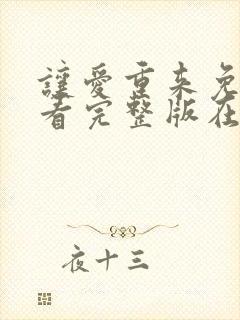 讓愛重来免
看完整版在
夜十三